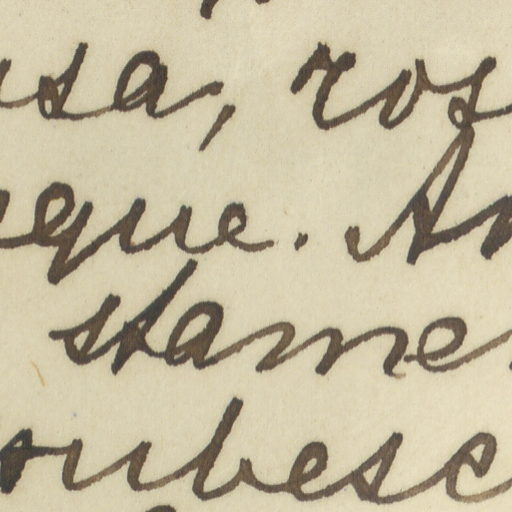 usa, ros
que. An
stamen
rubesc